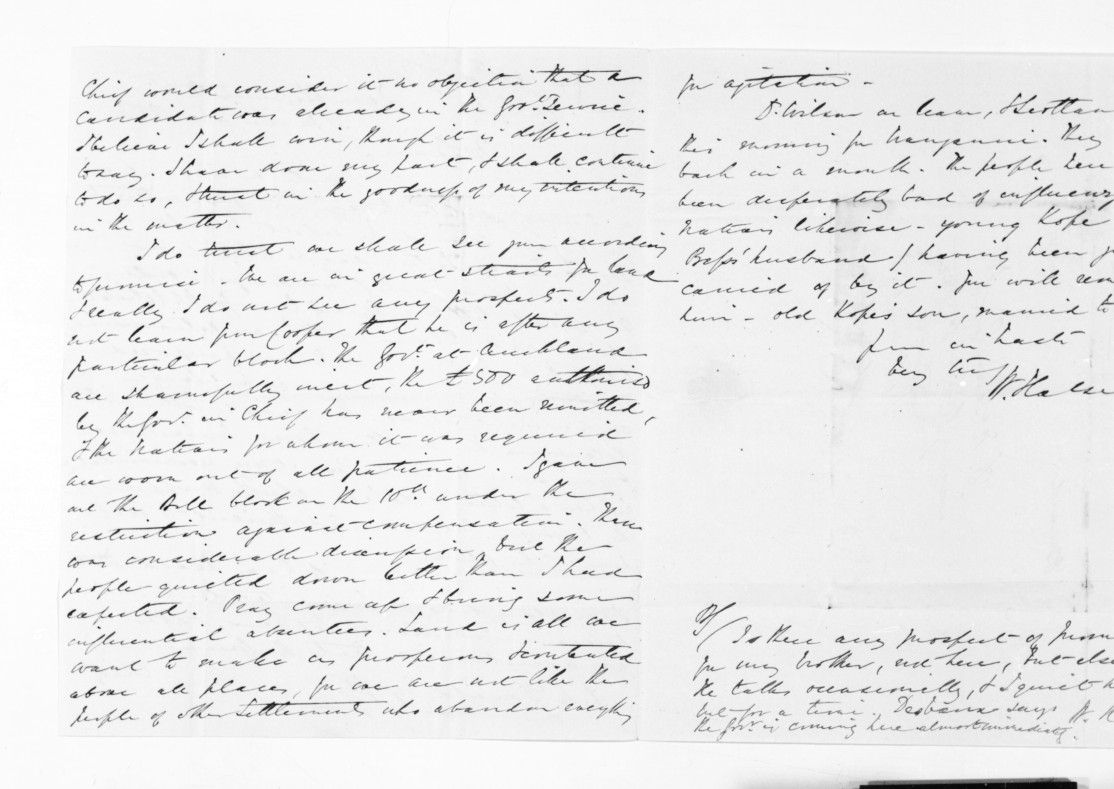 Chief would consider it no objection that a
candidate was already in the Govt. Service.
I believe I shall win, though it is difficult
to say. I have done my part, & shall continue
to do so, & trust in the goodness of my intentions
in the matter.
I do trust we shall see you according
to promise. We are in great straits for land
& really I do not see any prospect. I do
not learn from Cooper that he is after any
particular block. The Govt. at Auckland
are shamefully inert, the £500 authorised
by the Govr. in Chief has never been remitted,
& the Natives for whom it was required
are worn out of all patience. I gave
out the Bell block on the 10th under the
restriction against compensation. There
was considerable discussion, but the
people quieted down better than I had
expected. Pray come up, & bring some
influential absentees. Land is all we
want to make us prosperous & contented
above all places, for we are not like the
people of other Settlements who abandon everything
for agitation -
Dr. Wilson on leave, & Scotlan
this morning for Wanganui. They
back in a month. The people here
been desperately bad of influenz
Natives likewise - young Hope
Bess' husband) having been
carried off by it. You will rem
him - old Hope's son, married to
from in haste
Very try
W. Halse
PS/ Is there any prospect of prom
for my brother, not here, but else
He talks occasionally, & I quiet h
but for a time. Deobana says W. H
the Govr. is coming here almost immediately.